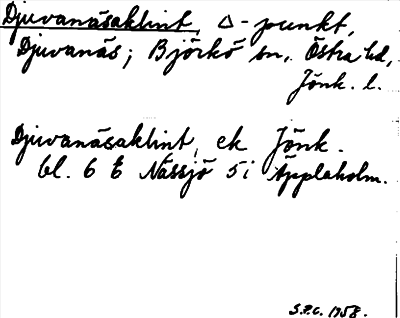 Djuvanäsaklint, △-punkt,
Djuvanäs; Björkö sn, Östra hd,
Jönk. l.
Djuvanäsaklint, ek Jönk.
bl. 6 E Nässjö 5 i Äpplaholm.
S.P.C. 1958.